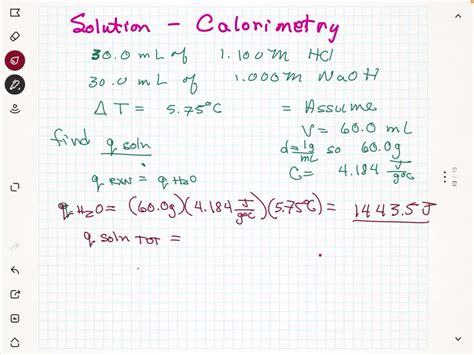 Solution - Calorimetry
30.0 mL of 1.100 M HCl
30.0 mL of 1.000 M NaOH
ΔT = 5.75°C = Assume
V = 60.0 mL
find q soln d = 1g/mL so 60.0g
C = 4.184 J/g°C
q RXN = q H2O
q H2O = (60.0g)(4.184 J/g°C)(5.75°C) = 1443.5 J
q soln TOT =
13 / 13